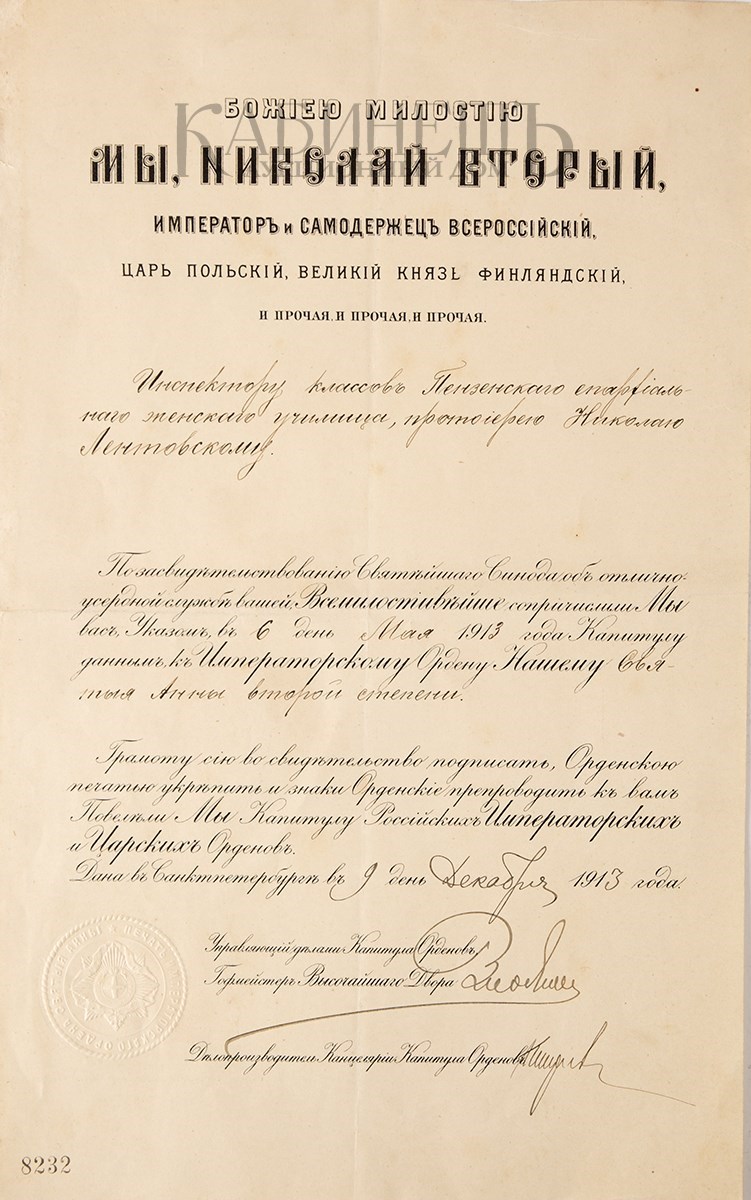 БОЖІЕЮ МИЛОСТІЮ
КАБИНЕТЪ
АУКЦИОННЫЙ ДОМ
МЫ, НИКОЛАЙ ВТОРЫЙ,
ИМПЕРАТОРЪ и САМОДЕРЖЕЦЪ ВСЕРОССІЙСКІЙ,
ЦАРЬ ПОЛЬСКІЙ, ВЕЛИКІЙ КНЯЗЬ ФИНЛЯНДСКІЙ,
И ПРОЧАЯ, И ПРОЧАЯ, И ПРОЧАЯ.
Инспектору классовъ Пензенскаго епархіаль-
наго женскаго училища, протоіерею Николаю
Лентовскому.
По засвидѣтельствованію Святѣйшаго Синода объ отлично-
усердной службѣ вашей, Всемилостивѣйше сопричислили Мы
васъ, Указомъ, въ 6 день Мая 1913 года Капитулу
даннымъ, къ Императорскому Ордену Нашему Свя-
тыя Анны второй степени.
Грамоту сію во свидѣтельство подписать, Орденскою
печатью укрѣпить и знаки Орденскіе препроводить къ вамъ
Повелѣли Мы Капитулу Россійскихъ Императорскихъ
и Царскихъ Орденовъ.
Дана въ Санктпетербургѣ въ 9 день Декабря 1913 года.
Управляющій дѣлами Капитула Орденовъ,
Гофмейстеръ Высочайшаго Двора
Дѣлопроизводитель Канцеляріи Капитула Орденовъ
8232